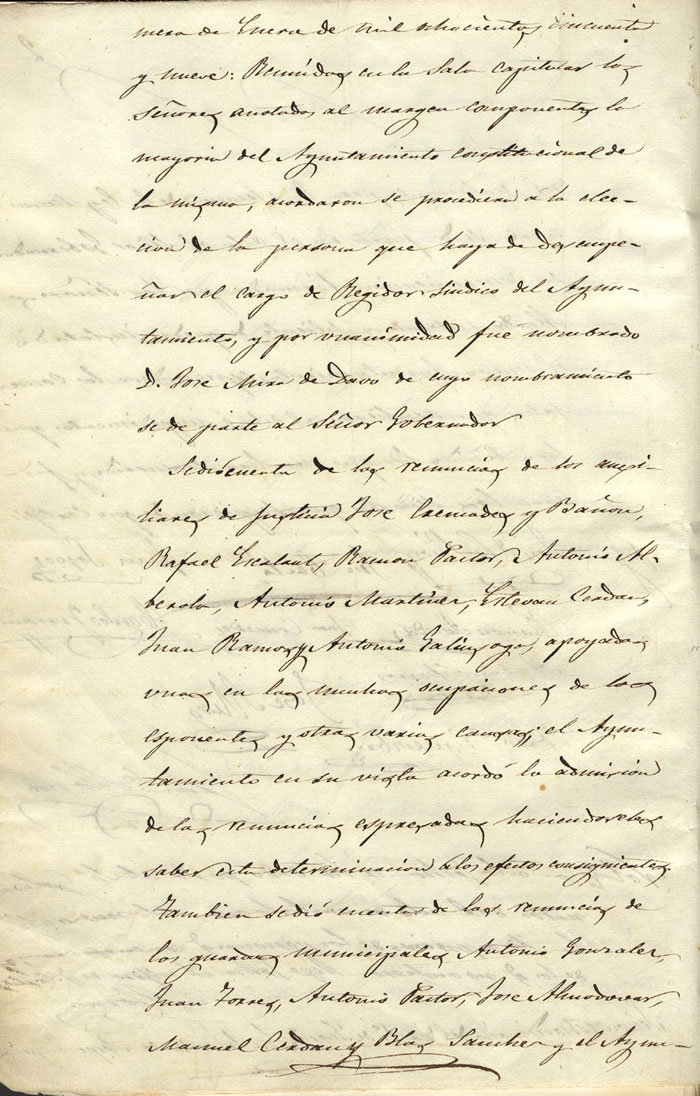 mero de Enero de mil ochocientos cincuenta
y nueve: Reunidos en la Sala capitular los
señores anotados al margen componentes la
mayoria del Ayuntamiento constitucional de
la misma, acordaron se procediera a la elec-
ción de la persona que haya de desempe-
ñar el cargo de Regidor Sindico del Ayun-
tamiento, y por unanimidad fué nombrado
D. Jose Mira de Davo de cuyo nombramiento
se de parte al Señor Gobernador
Se dió cuenta de las renuncias de los ausi-
liares de Justicia Jose Cremades y Bañon,
Rafael Escalant, Ramon Pastor, Antonio Al-
berola, Antonio Martinez, Estevan Cerdan,
Juan Ramos y Antonio Galinsoga, apoyadas
unas en las muchas ocupaciones de los
esponentes y otras varias causas; el Ayun-
tamiento en su vista acordó la admision
de las renuncias espresadas haciendoseles
saber esta determinacion a los efectos consiguientes
Tambien se dió cuenta de las renuncias de
los guardas municipales Antonio Gonzalez,
Juan Torres, Antonio Pastor, Jose Almodovar,
Manuel Cerdan y Blas Sanchez y el Ayun-